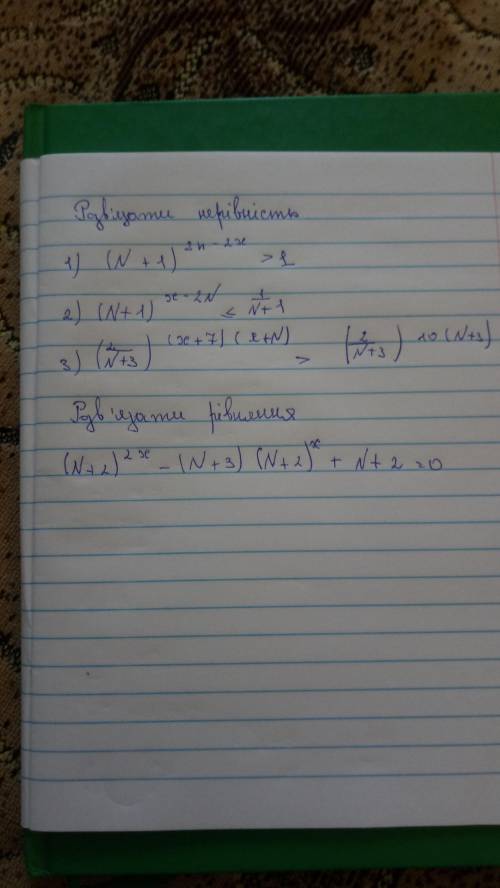 Розвязати нерівність
1) (N + 1)^{2n - 2x} > 1
2) (N+1)^{x - 2N} ≤ \frac{1}{N+1}
3) (\frac{2}{N+3})^{(x+7)(x+N)} > (\frac{2}{N+3})^{10(N+3)}
Розв'язати рівняння
(N+2)^{2x} - (N+3)(N+2)^x + N+2 = 0